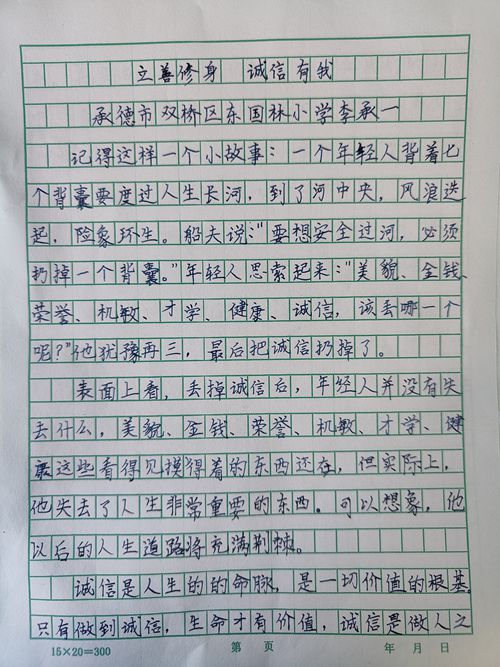 立善修身 诚信有我
承德市双桥区东国林小学李承一
记得这样一个小故事：一个年轻人背着七
个背囊要度过人生长河，到了河中央，风浪迭
起，险象环生。船夫说："要想安全过河，必须
扔掉一个背囊。"年轻人思索起来："美貌、金钱、
荣誉、机敏、才学、健康、诚信，该丢哪一个
呢？"他犹豫再三，最后把诚信扔掉了。
表面上看，丢掉诚信后，年轻人并没有失
去什么，美貌、金钱、荣誉、机敏、才学、健
康这些看得见摸得着的东西还在，但实际上，
他失去了人生非常重要的东西。可以想象，他
以后的人生道路将充满荆棘。
诚信是人生的的命脉，是一切价值的根基。
只有做到诚信，生命才有价值，诚信是做人之
15×20=300 第 页 年 月 日